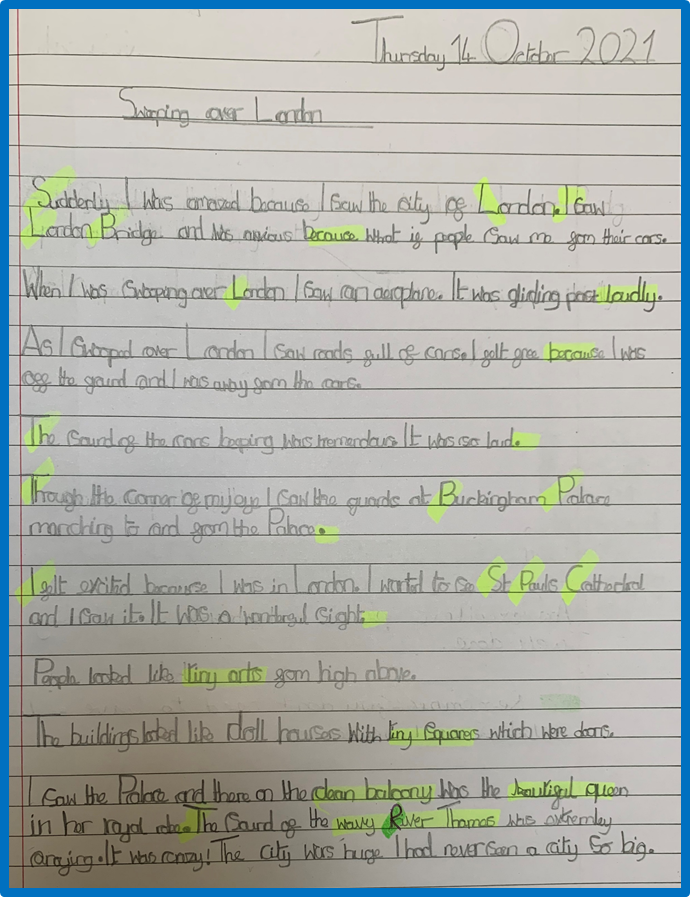 Thursday 14 October 2021
Swooping over London
Suddenly I was amazed because I saw the city of London. I saw
London Bridge and was anxious because what if people saw me from their cars.
When I was swooping over London I saw an aeroplane. It was gliding past loudly.
As I swooped over London I saw roads full of cars. I felt free because I was
off the ground and I was away from the cars.
The sound of the cars beeping was tremendous It was so loud.
Through the corner of my eye I saw the guards at Buckingham Palace
marching to and from the Palace.
I felt excited because I was in London. I wanted to see St Pauls Cathedral
and I saw it. It was a wonderful sight.
People looked like tiny ants from high above.
The buildings looked like doll houses with tiny squares which were doors.
I saw the Palace and there on the clean balcony was the beautiful queen
in her royal robe. The sound of the wavy River Thames was extremley
anoying. It was crazy! The city was huge I had never seen a city so big.